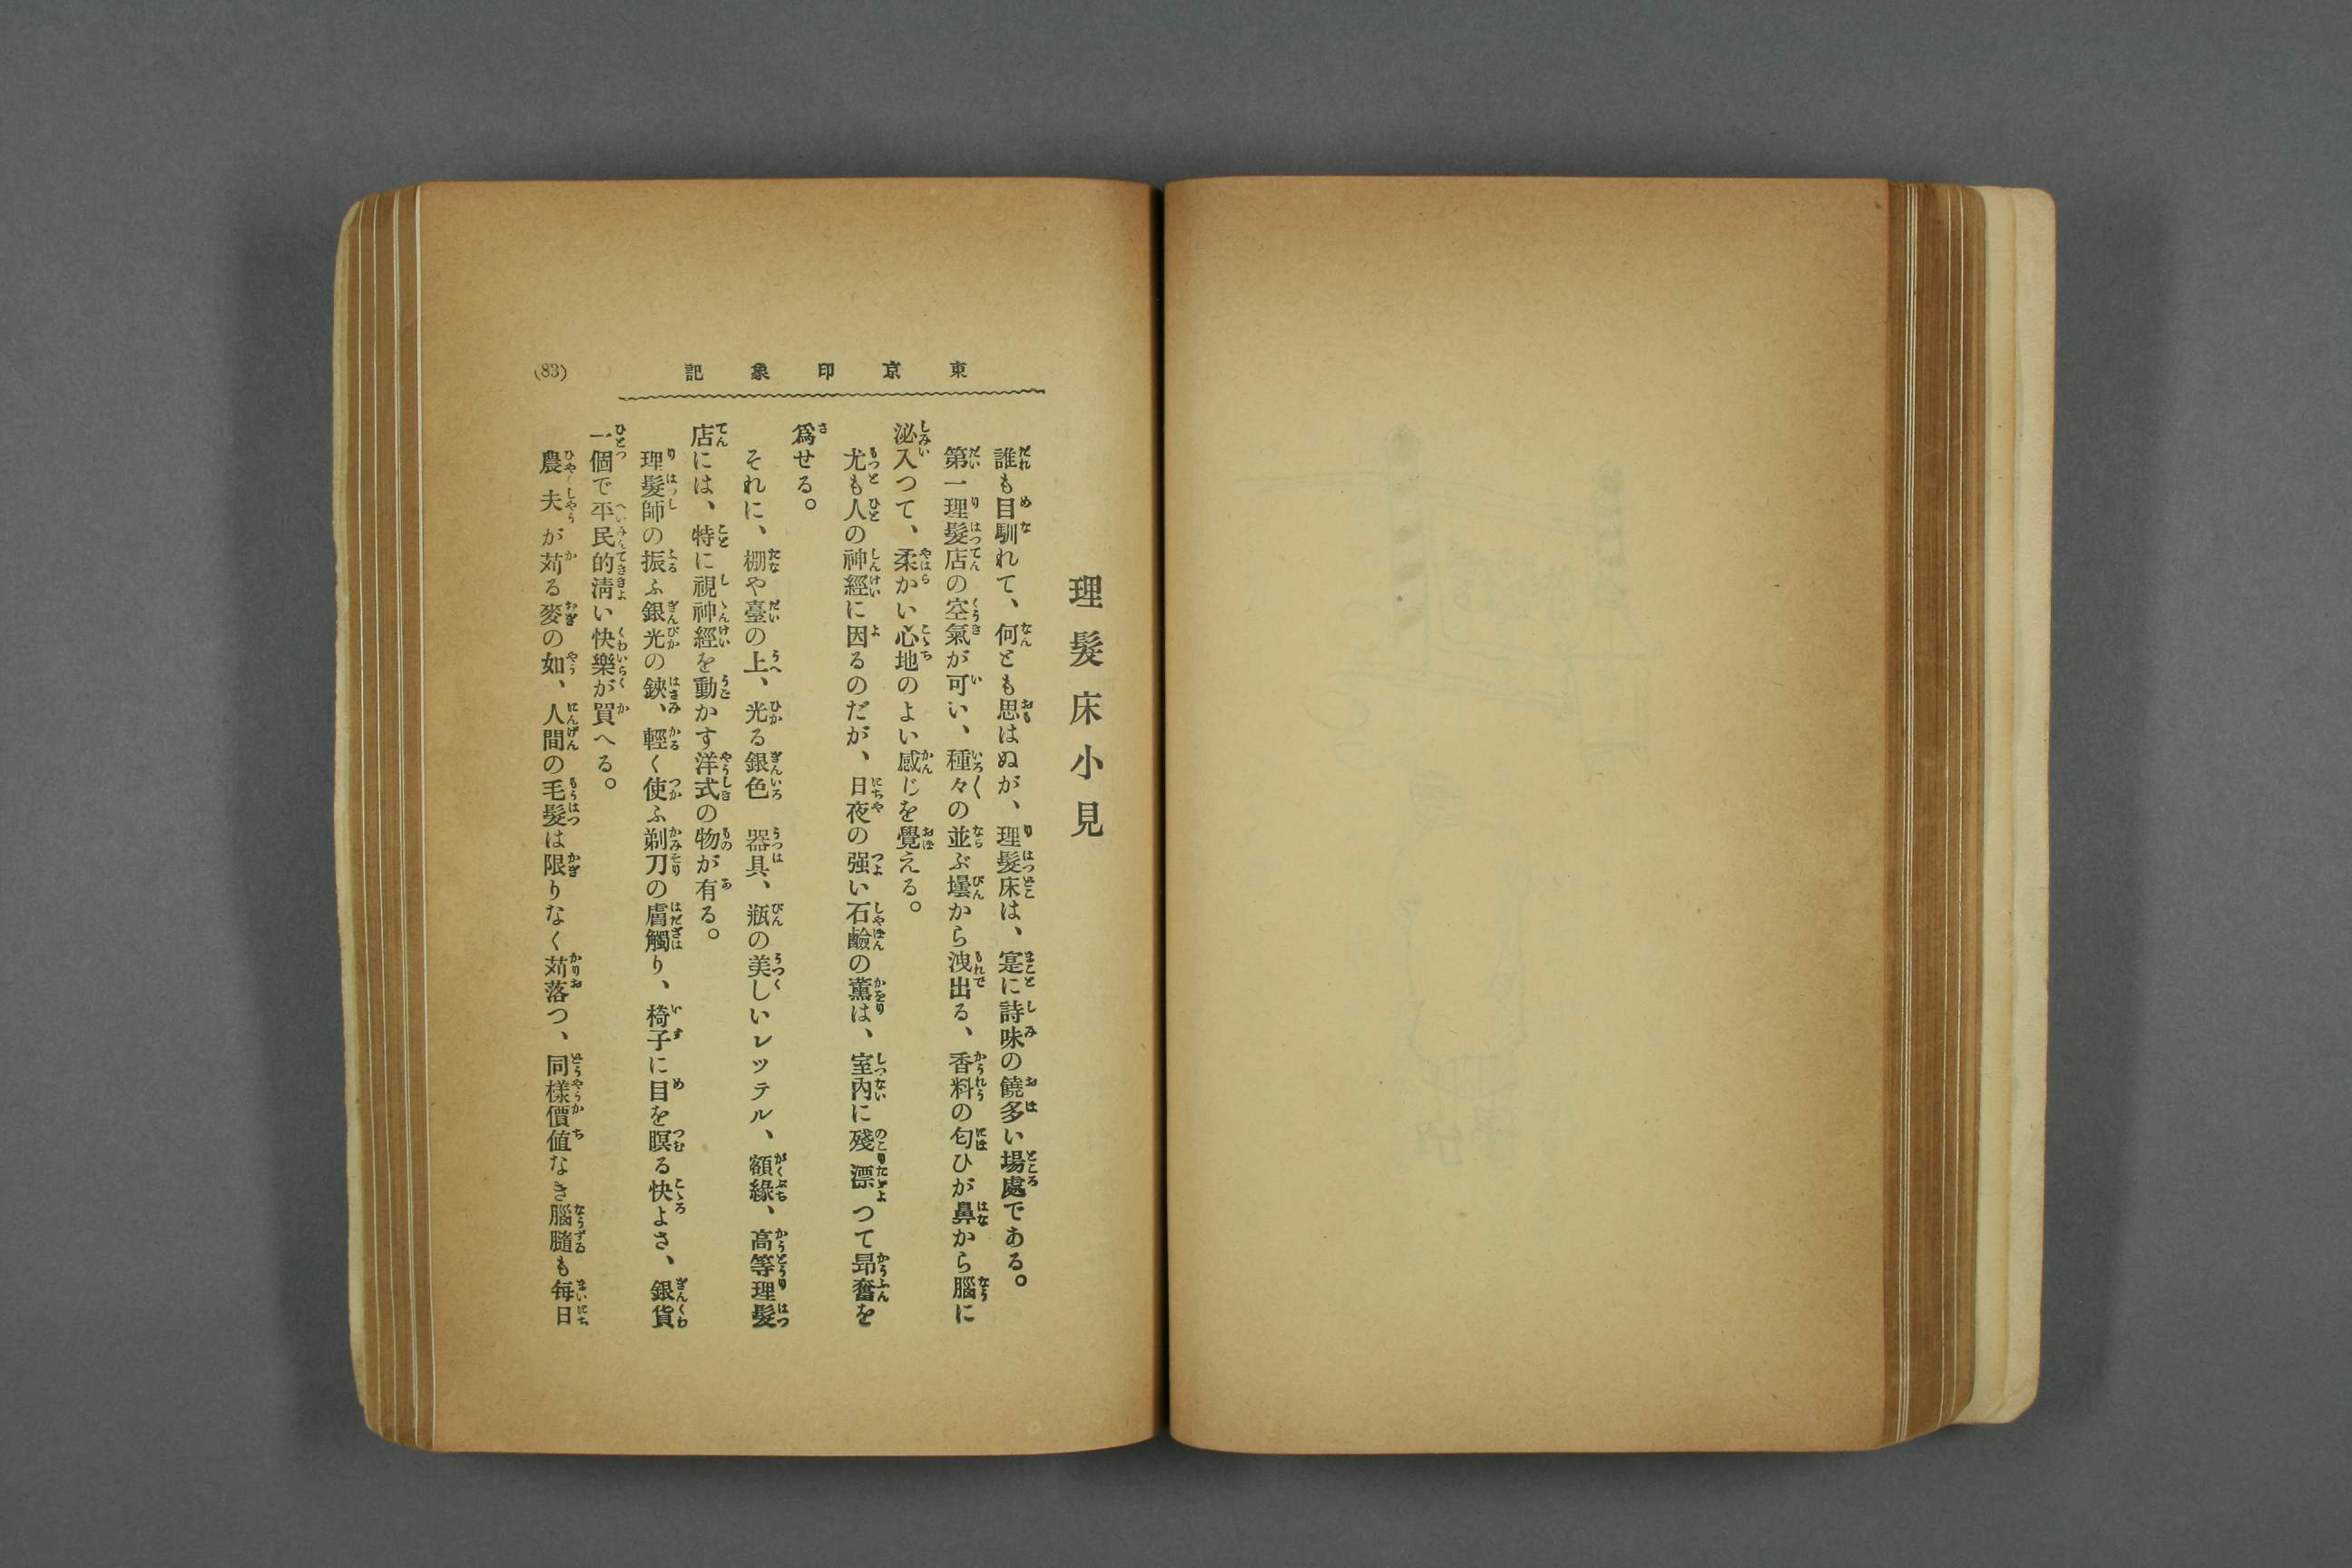 東京印象記
(83)
理髮床小見
誰も目馴れて、何とも思はぬが、理髮床は、寔に詩味の饒多い場處である。
第一理髮店の空氣が可い、種々の並ぶ壜から洩出る、香料の匂ひが鼻から腦に
泌入つて、柔かい心地のよい感じを覺える。
尤も人の神經に因るのだが、日夜の强い石鹼の薰は、室內に殘漂つて昂奮を
爲せる。
それに、棚や臺の上、光る銀色器具、瓶の美しいレッテル、額緣、高等理髮
店には、特に視神經を動かす洋式の物が有る。
理髮師の振ふ銀光の鋏、輕く使ふ剃刀の膚觸り、椅子に目を瞑る快よさ、銀貨
一個で平民的淸い快樂が買へる。
農夫が苅る麥の如、人間の毛髮は限りなく苅落つ、同樣價値なき腦髓も每日